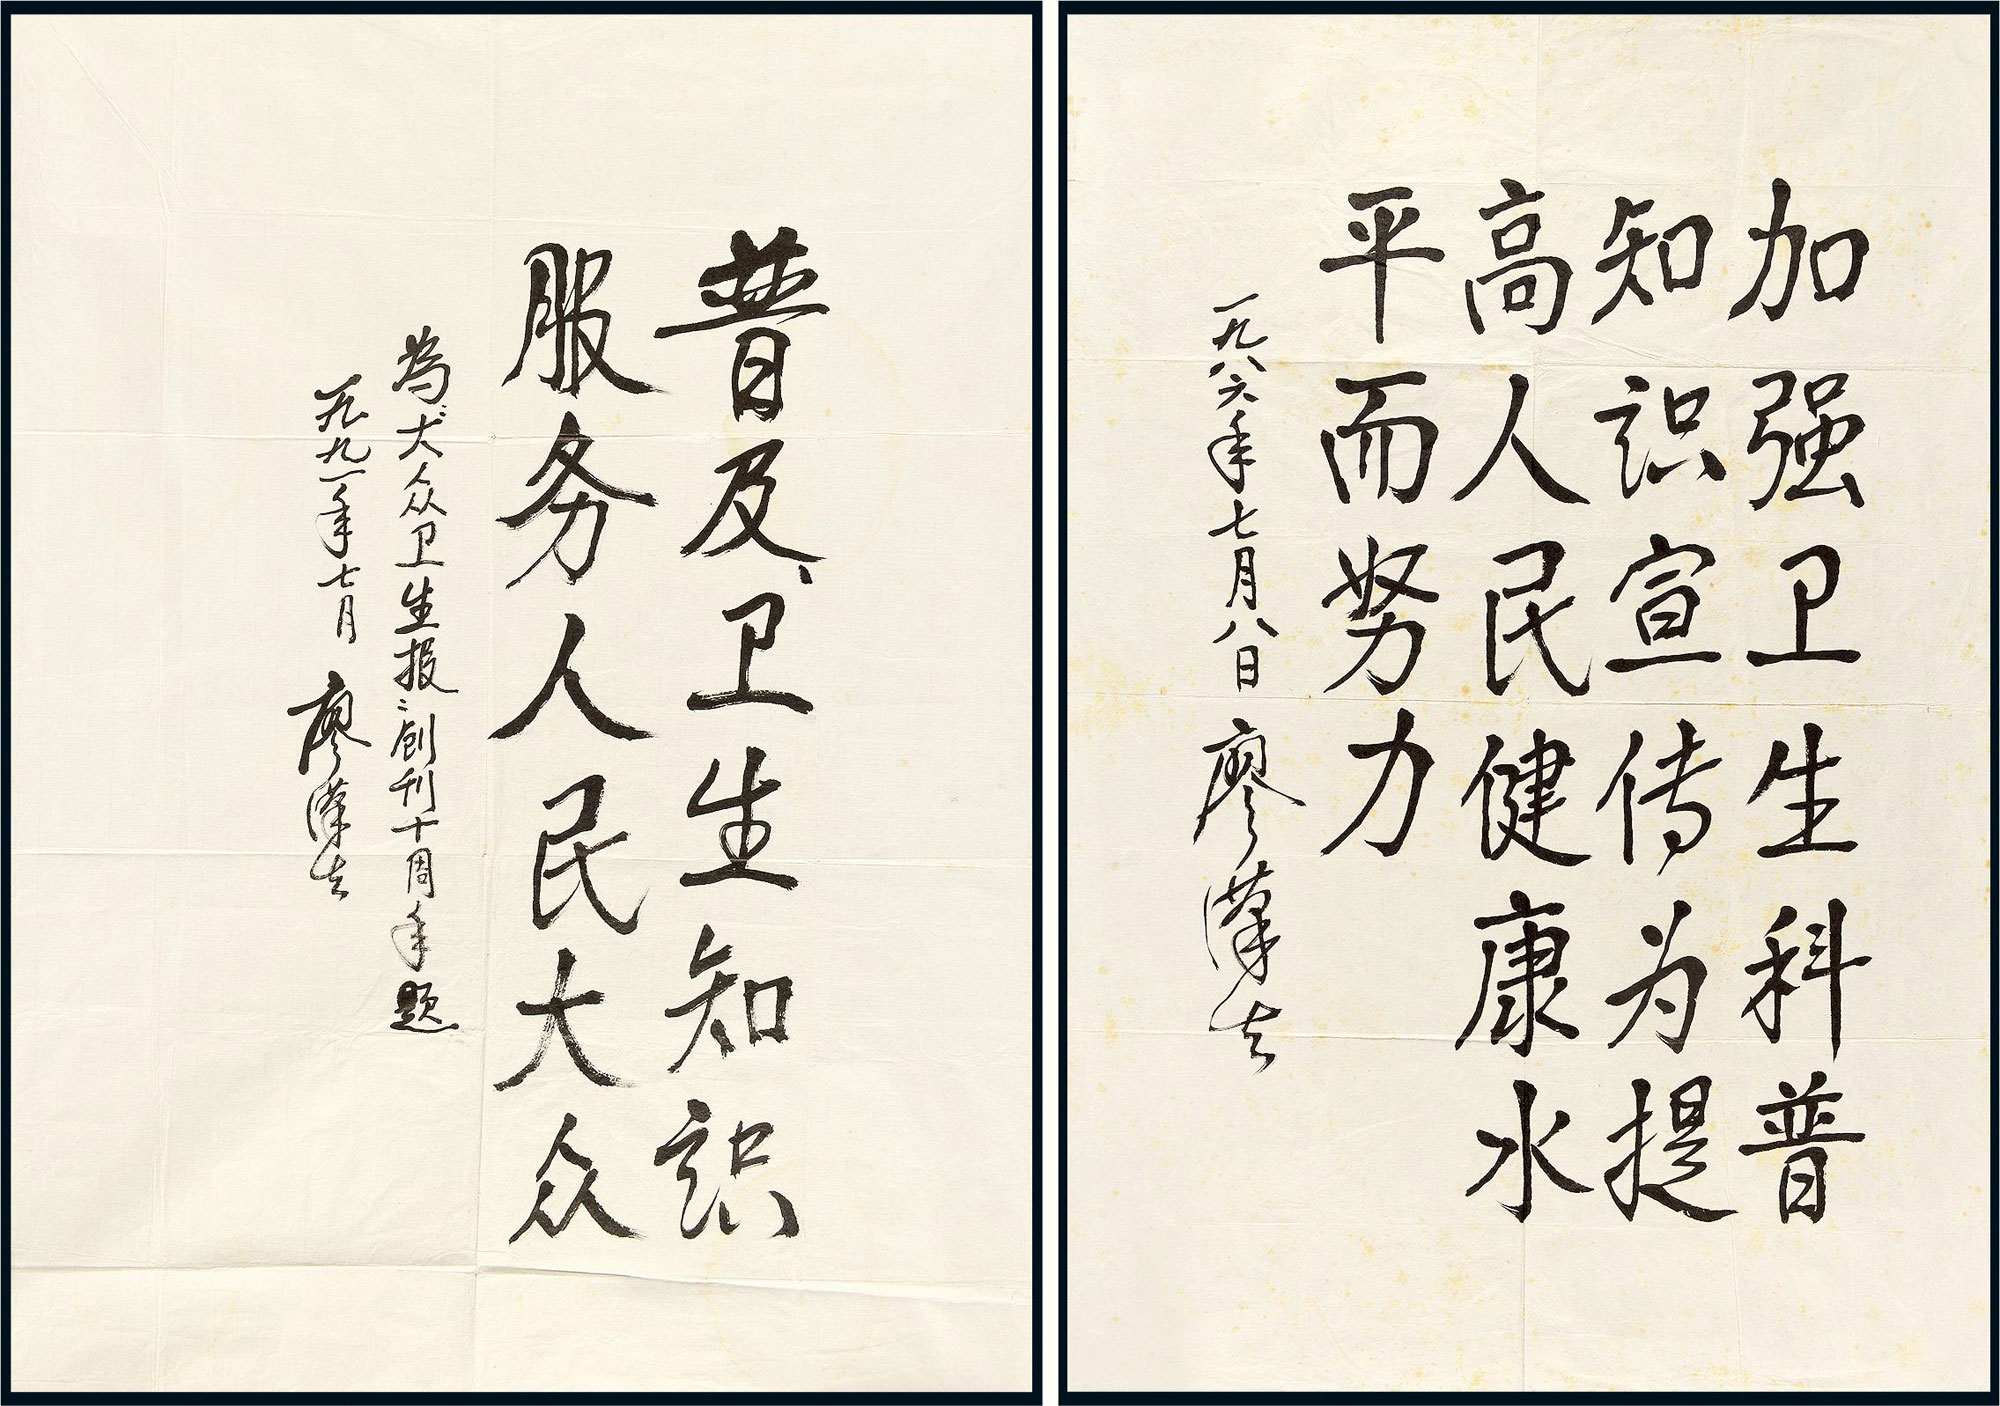 加强卫生科普
知识宣传为提
高人民健康水
平而努力
一九八六年七月八日 廖漢生
普及卫生知识
服务人民大众
為"大众卫生报"創刊十周年题
一九九一年七月 廖漢生